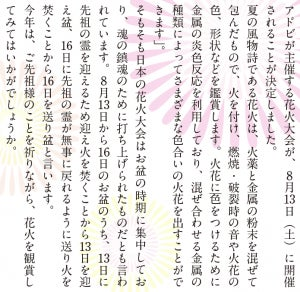 アドビが主催する花火大会が、8月13日（土）に開催
されることが決定しました。
夏の風物詩である花火は、火薬と金属の粉末を混ぜて
包んだもので、火を付け、燃焼・破裂時の音や火花の
色、形状などを鑑賞します。火花に色をつけるために
金属の炎色反応を利用しており、混ぜ合わせる金属の
種類によってさまざまな色合いの火花を出すことがで
きます。
そもそも日本の花火大会はお盆の時期に集中してお
り、魂の鎮魂のために打ち上げられたものだとも言わ
れています。8月13日から16日のお盆のうち、13日に
先祖の霊を迎えるため迎え火を焚くことから13日を迎
え盆、16日に先祖の霊が無事に戻れるように送り火を
焚くことから16日を送り盆と言います。
今年は、ご先祖様のことを祈りながら、花火を観賞し
てみてはいかがでしょうか。